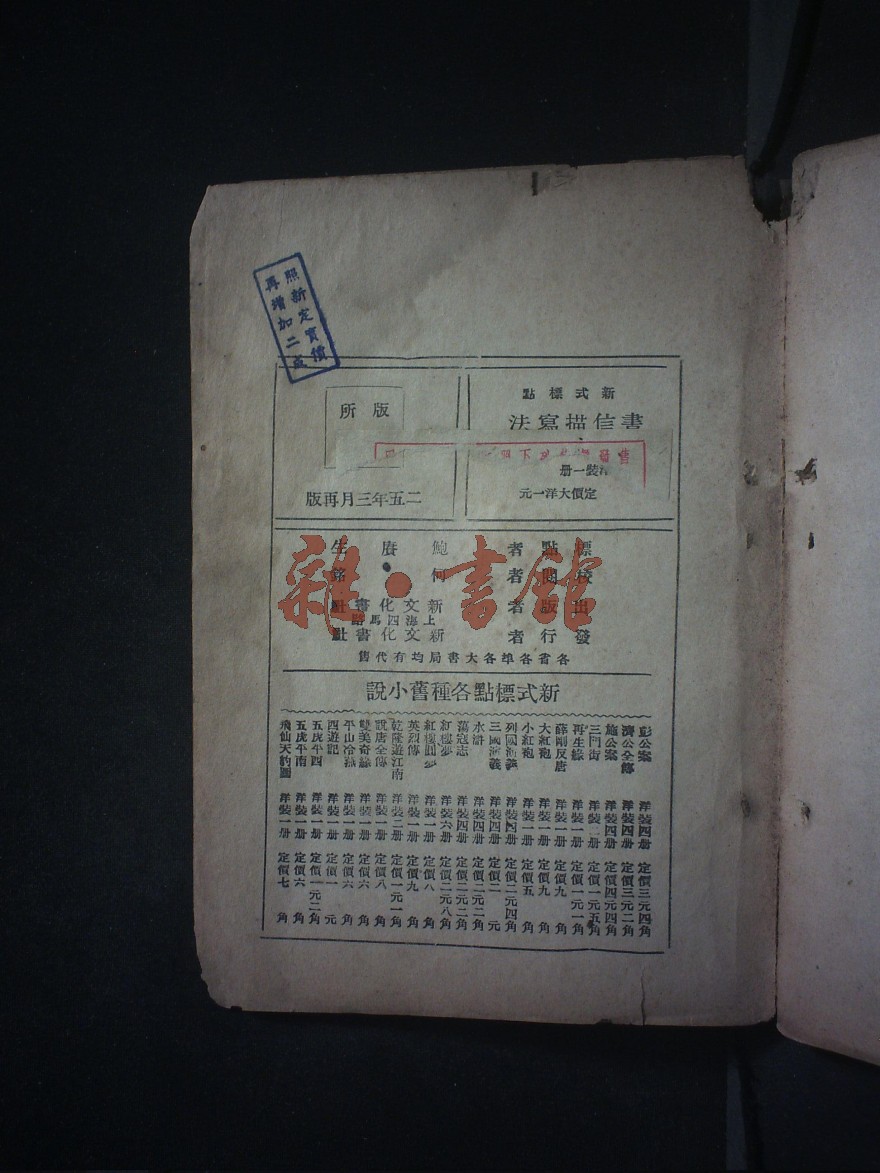 照新定實價
再增加二成
新式標點
書信描寫法
洋裝一册
定價大洋一元
版所
二五年三月再版
標點者 鮑賡生
校閱者 何銘
出版者 新文化書社
上海四馬路
發行者 新文化書社
各省各埠各大書局均有代售
新式標點各種舊小說
彭公案 洋裝四册 定價三元四角
濟公全傳 洋裝四册 定價三元二角
施公案 洋裝四册 定價四元四角
三門街 洋裝二册 定價一元五角
再生緣 洋裝一册 定價一元一角
薛剛反唐 洋裝一册 定價九角
大紅袍 洋裝一册 定價九角
小紅袍 洋裝一册 定價五角
列國演義 洋裝四册 定價二元四角
三國演義 洋裝四册 定價二元
水滸 洋裝四册 定價二元二角
蕩寇志 洋裝四册 定價二元二角
紅樓夢 洋裝六册 定價二元八角
紅樓圓夢 洋裝一册 定價八角
英烈傳 洋裝一册 定價九角
乾隆遊江南 洋裝二册 定價一元一角
說唐全傳 洋裝一册 定價八角
雙美奇緣 洋裝一册 定價六角
平山冷燕 洋裝一册 定價六角
四遊記 洋裝一册 定價一元
五虎平西 洋裝一册 定價一元二角
五虎平南 洋裝一册 定價六角
飛仙天豹圖 洋裝一册 定價七角
雜·書館